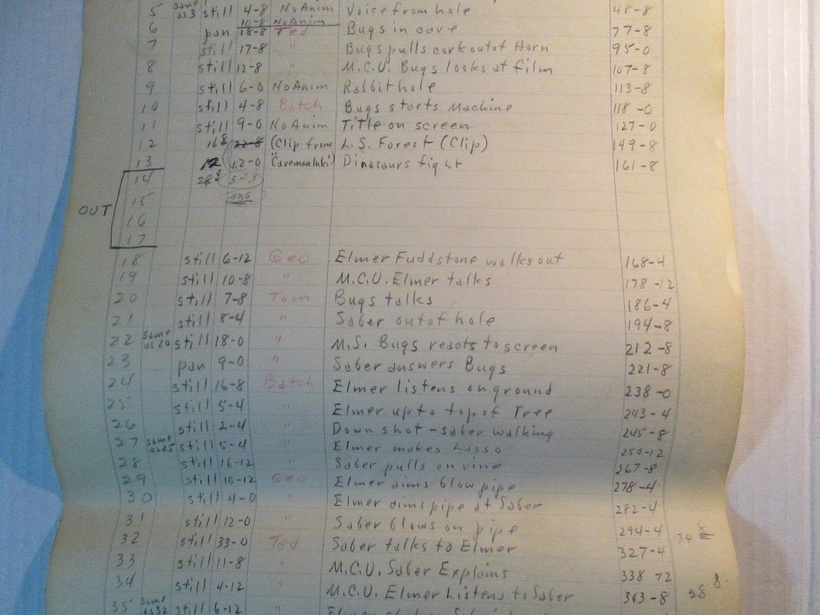 5 same as 3 still 4-8 NoAnim Voice from hole 48-8
10-8 NoAnim
6 pan 18-8 Ted Bugs in cave 77-8
7 still 17-8 " Bugs pulls cork out of Horn 95-0
8 still 12-8 " M.C.U. Bugs looks at film 107-8
9 still 6-0 NoAnim Rabbit hole 113-8
10 still 4-8 Batch Bugs starts Machine 118-0
11 still 9-0 NoAnim Title on screen 127-0
12 16-8 22-8 (Clip from L.S. Forest (Clip) 149-8
13 12 12-0 "Caveman Inki) Dinasaurs fight 161-8
14 28-8 3-8
15
16
OUT
17
18 still 6-12 Geo Elmer Fuddstone walks out 168-4
19 still 10-8 " M.C.U. Elmer talks 178-12
20 still 7-8 Tom Bugs talks 186-4
21 still 8-4 " Saber out of hole 194-8
22 same as 20 still 18-0 " M.S. Bugs reacts to screen 212-8
23 pan 9-0 " Saber answers Bugs 221-8
24 still 16-8 Batch Elmer listens on ground 238-0
25 still 5-4 " Elmer up to top of Tree 243-4
26 still 2-4 " Down shot - saber walking 245-8
27 same as 25 still 5-4 " Elmer makes Lasso 250-12
28 still 16-12 " Saber pulls on vine 267-8
29 still 10-12 Geo Elmer aims blow pipe 278-4
30 still 4-0 " Elmer aims pipe at Saber 282-4
31 still 12-0 " Saber blows on pipe 294-4
32 still 33-0 Ted Saber talks to Elmer 327-4 34
33 still 11-8 " M.C.U. Saber Explains 338-12
34 still 4-12 " M.C.U. Elmer Listens to Saber 343-8 28 8
35 same as 32 still 6-12 " Elmer